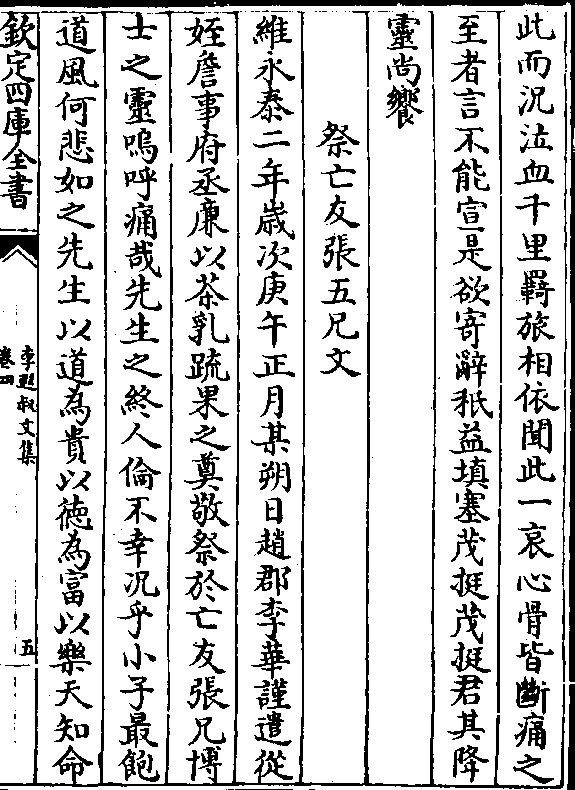 此而況泣血千里羇旅相依聞此一哀心骨皆斷痛之
至者言不能宣是欲寄辭秖益填塞茂挺茂挺君其降
靈尚饗
祭亡友張五兄文
維永泰二年歲次庚午正月某朔日趙郡李華謹遣從
姪詹事府丞廙以茶乳蹠果之奠敬祭於亡友張兄博
士之靈嗚呼痛哉先生之終人倫不幸况乎小子最飽
道風何悲如之先生以道為貴以徳為富以樂天知命
欽定四庫全書
李遐叔文集
卷四
五